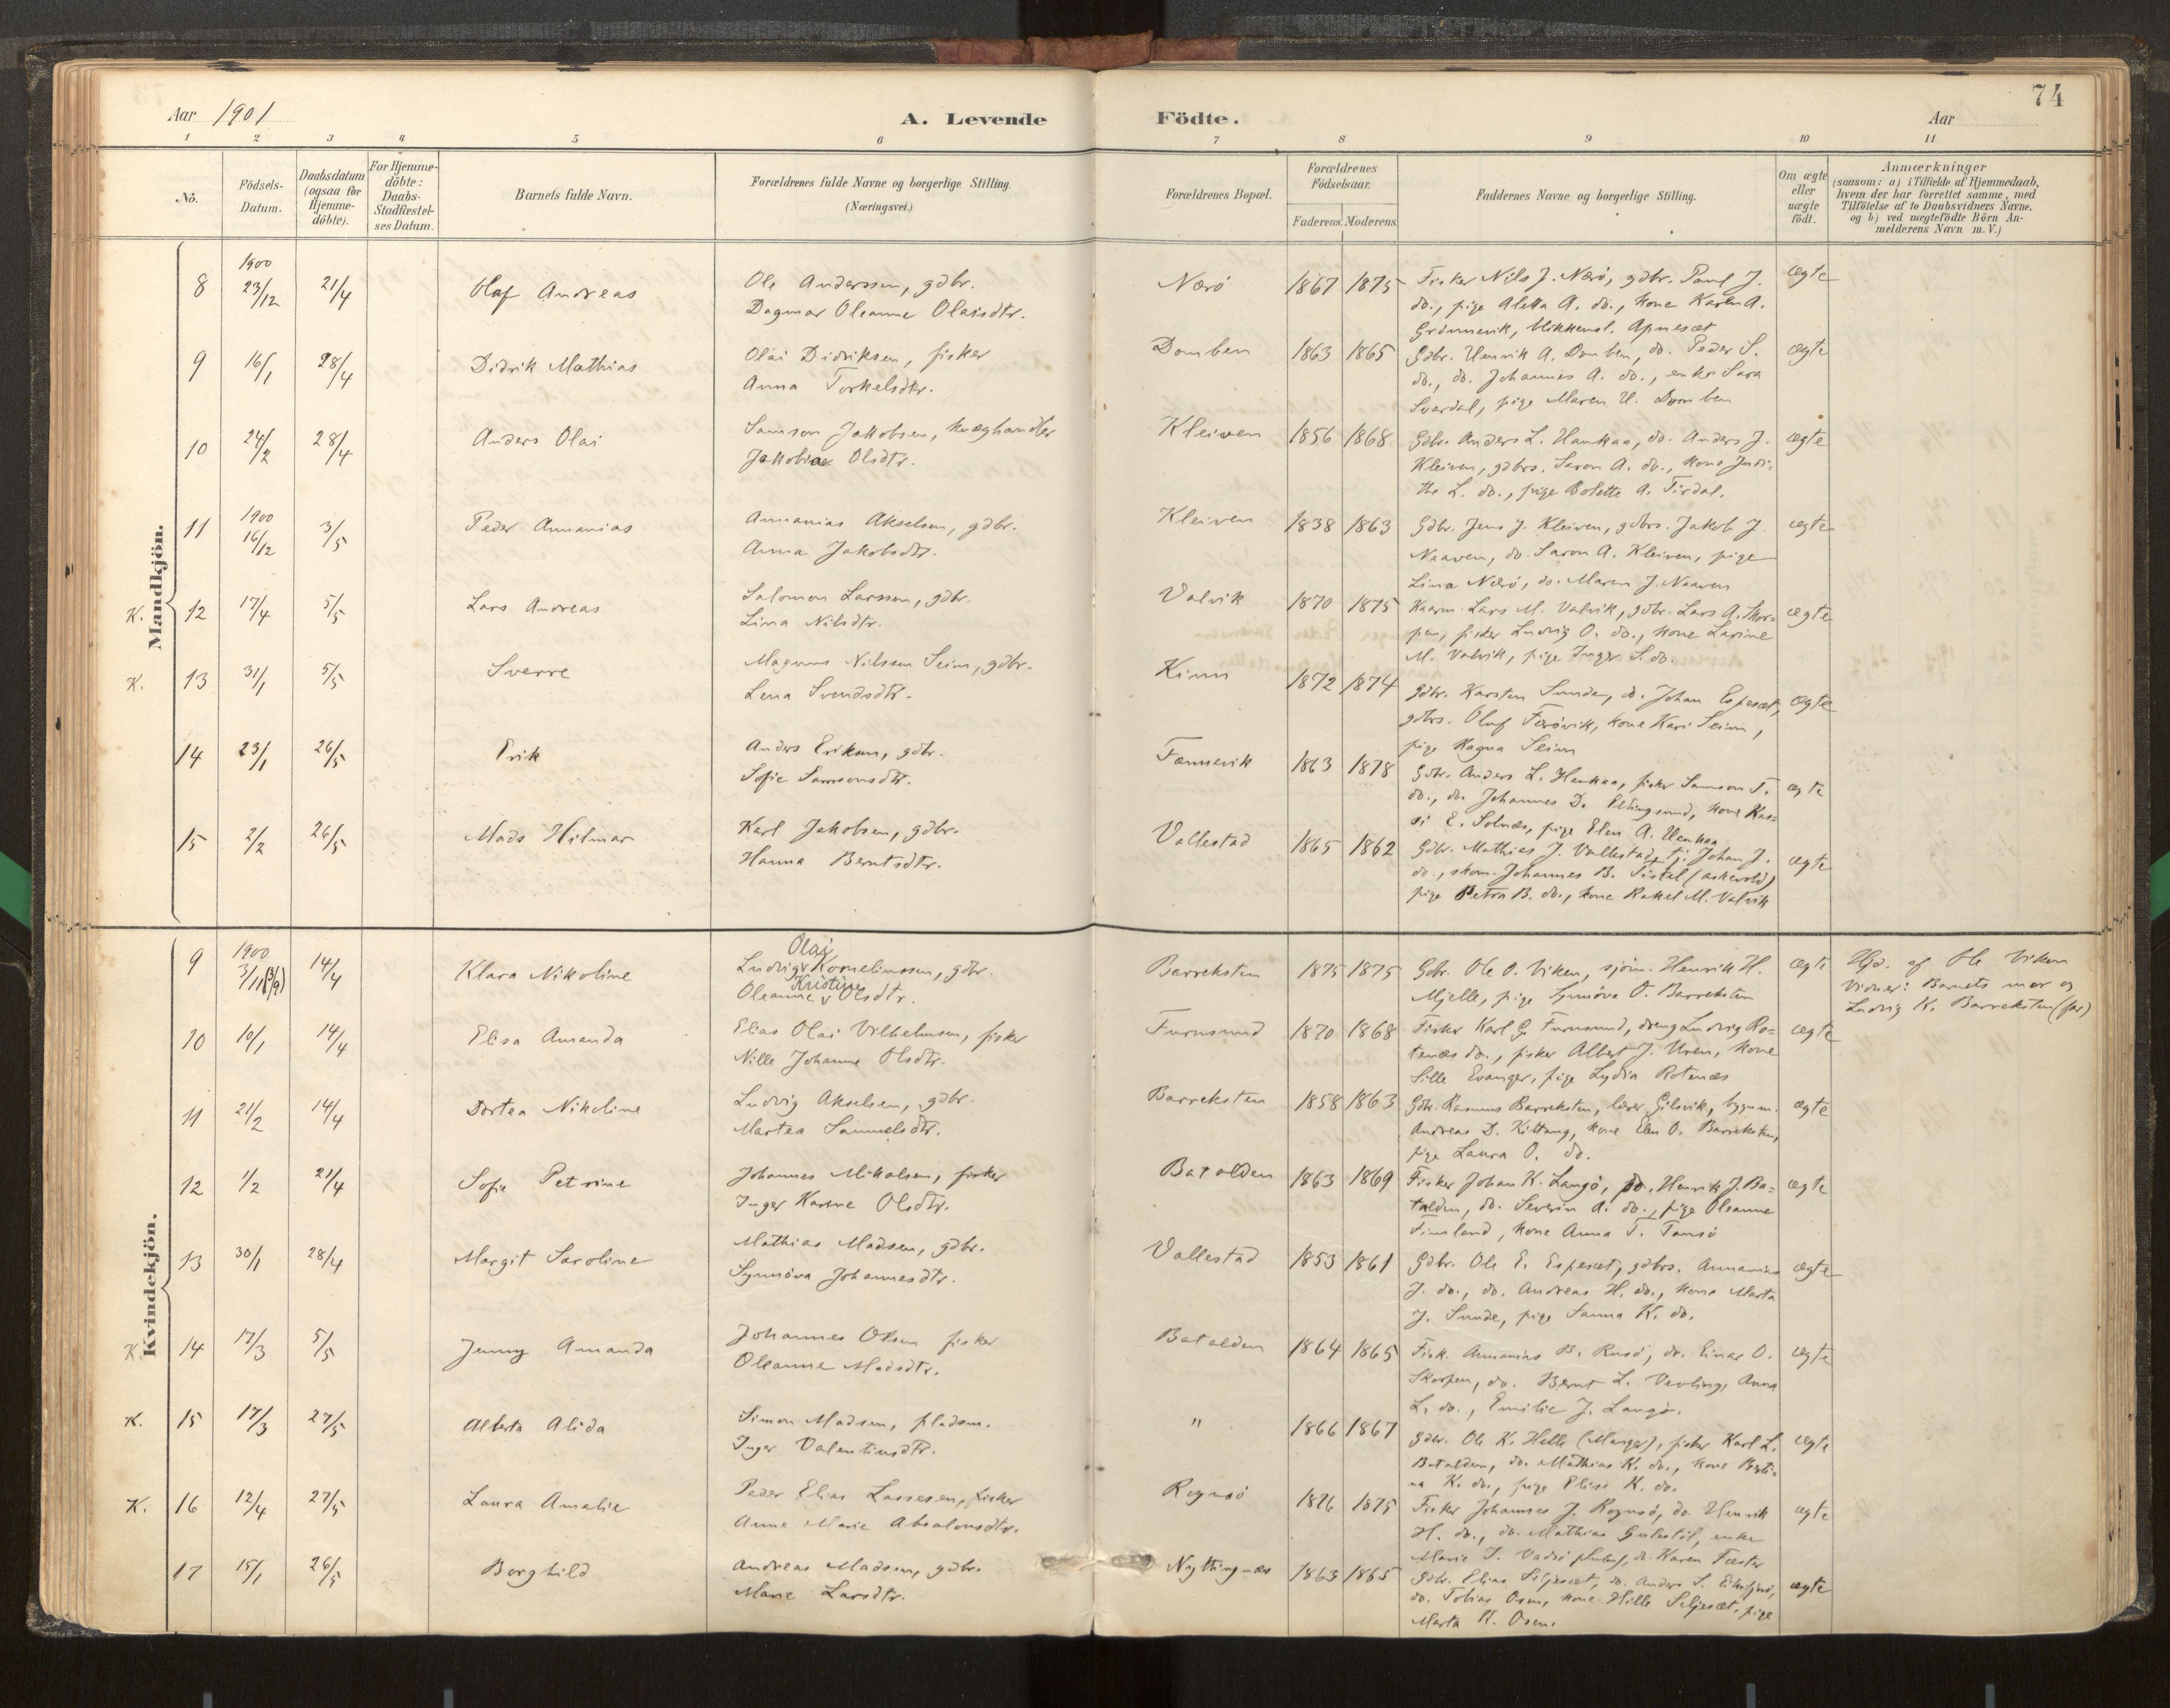 74
Aar 1901
A. Levende Födte.
Aar
1 2 3 4 5 6 7 8 9 10 11
No.
Födsels-Datum.
Daabsdatum (ogsaa for Hjemme-döbte).
For Hjemme-döbte: Daabs-Stadfæstel-ses Datum.
Barnets fulde Navn.
Forældrenes fulde Navne og borgerlige Stilling.
(Næringsvei.)
Forældrenes Bopæl.
Forældrenes Födselsaar.
Faderens. Moderens.
Faddernes Navne og borgerlige Stilling.
Om ægte eller uægte födt.
Anmærkninger
(saasom: a) i Tilfælde af Hjemmedaab,
hvem der har forrettet samme, med
Tilföielse af to Daabsvidners Navne,
og b) ved uægtefödte Börn An-
melderens Navn m. V.)
Mandkjön.
8 1900 23/12 21/4 Olaf Andreas
Ole Anderssen, gdbr.
Dagmar Oleanne Olaisdtr.
Nærö 1867 1875
Fisker Nils J. Nærö, gdbr. Paul J.
do., pige Aletta A. do., kone Karen A.
Grönnevik, blikkensl. Apnesæt
ægte
9 16/1 28/4 Didrik Mathias
Olai Didriksen, fisker
Anna Torkelsdtr.
Domben 1863 1865
Gdbr. Henrik A. Domben, do. Peder S.
do., do. Johannes A. do., enke Sara
Svardal, pige Maren H. Domben
ægte
10 24/2 28/4 Anders Olai
Samson Jakobsen, kvæghandler
Jakobine Olsdtr.
Kleiven 1856 1868
Gdbr. Anders L. Haukaa, do. Anders J.
Kleiven, gdbrs. Saron A. do., kone Judi=
the L. do., pige Bolette A. Tirdal.
ægte
11 1900 16/12 3/5 Peder Annanias
Annanias Akselsen, gdbr.
Anna Jakobsdtr.
Kleiven 1838 1863
Gdbr. Jens J. Kleiven, gdbrs. Jakob J.
Naaven, do. Saron A. Kleiven, pige
Lina Nærö, do. Maren J. Naaven
ægte
K. 12 17/4 5/5 Lars Andreas
Salomon Larssen, gdbr.
Lina Nilsdtr.
Valvik 1870 1875
Kaarm. Lars M. Valvik, gdbr. Lars A. Skor=
pen, fisker Ludvig O. do., kone Larine
M. Valvik, pige Inger S. do.
ægte
K. 13 31/1 5/5 Sverre
Magnus Nilssen Seim, gdbr.
Lena Svendsdtr.
Kinn 1872 1874
Gdbr. Karsten Sunde, do. Johan Espesæt,
gdbrs. Oluf Ferövik, kone Kari Seim,
pige Ragna Seim
ægte
14 23/1 26/5 Erik
Anders Eriksen, gdbr.
Sofie Samsonsdtr.
Fænnevik 1863 1878
Gdbr. Anders L. Haukaa, fisker Samson T.
do., do. Johannes D. Ellingsund, kone Kas=
si E. Solnæs, pige Elen A. Haukaa
ægte
15 2/2 26/5 Mads Hilmar
Karl Jakobsen, gdbr.
Hanna Berntsdtr.
Vallestad 1865 1862
Gdbr. Mathias J. Vallestad, tj. Johan J.
do., skom. Johannes B. Tistel (askevold)
pige Petra B. do., kone Rakel M. Valvik
ægte
Kvindekjön.
9 1900 3/11 (3/9) 14/4 Klara Nikoline
Olai
Ludvig v Korneliussen, gdbr.
Kristine
Oleanne v Olsdtr.
Barreksten 1875 1875
Gdbr. Ole O. Viken, sjöm. Henrik H.
Mjelle, pige Synnöva O. Barreksten
ægte
Hjd. af Ole Viken
Vidner: Barnets mor og
Ludvig K. Barreksten (far)
10 10/1 14/4 Elisa Amanda
Elias Olai Vilhelmsen, fisker
Nille Johanne Olsdtr.
Furusund 1870 1868
Fisker Karl G. Furusund, dreng Ludvig Ro=
tenæs do., fisker Albert J. Uren, kone
Sille Evanger, pige Lydia Rotenæs
ægte
11 21/2 14/4 Dortea Nikoline
Ludvig Akselsen, gdbr.
Martea Samuelsdtr.
Barreksten 1858 1863
Gdbr. Rasmus Barreksten, lærer Gilsvik, bygnm.
Andreas D. Kittang, kone Elen O. Barreksten,
pige Laura O. do.
ægte
12 1/2 21/4 Sofie Petrine
Johannes Mikalsen, fisker
Inger Karine Olsdtr.
Batalden 1863 1869
Fisker Johan K. Langö, do. Henrik J. Ba=
talden, do. Severin A. do., pige Oleanne
Fimland, kone Anna T. Tansö
ægte
13 30/1 28/4 Margit Saroline
Mathias Madsen, gdbr.
Synnöva Johannesdtr.
Vallestad 1853 1861
Gdbr. Ole E. Espesæt, gdbrs. Annanias
J. do., do. Andreas H. do., kone Marta
J. Sunde, pige Sanna K. do.
ægte
K. 14 17/3 5/5 Jenny Amanda
Johannes Olsen fisker
Oleanne Madsdtr.
Batalden 1864 1865
Fisk. Annanias B. Rusö, do. Einar O.
Skorpen, do. Bernt L. Vevling, Anna
L. do., Emilie J. Langö.
ægte
K. 15 17/3 27/5 Alberta Alida
Simon Madsen, pladsm.
Inger Valentinsdtr.
" 1866 1867
Gdbr. Ole K. Helle (Manger), fisker Karl L.
Batalden, do. Mathias K. do., kone
K. do., pige Elise K. do.
ægte
K. 16 12/4 27/5 Laura Amalie
Peder Elias Lassesen, fisker
Anne Marie Absalonsdtr.
Rognsö 1876 1875
Fisker Johannes J. Rognsö, do. Henrik
H. do., do. Mathias Gulestöl, enke
Marie J. Vadsö do. Karen Fæster
ægte
17 15/1 26/5 Borghild
Andreas Madsen, gdbr.
Marie Larsdtr.
Nyttingnæs 1863 1865
Gdbr. Elias Seljesæt, do. Anders S.
do. Tobias Osen, kone Hille Seljesæt, pige
Marta K. Osen.
ægte